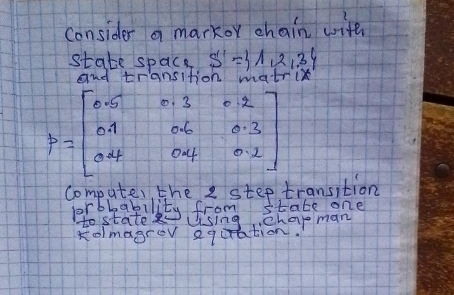 Consider a markov chain with
state space S = {1,2,3}
and transition matrix
0.5 0.3 0.2
0.1 0.6 0.3
P =
0.4 0.4 0.2
Compute, the 2 step transition
probability from state one
to state 2 using chapman
Kolmagrov equation.